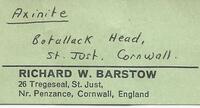 Axinite
Botallack Head,
St. Just, Cornwall.
RICHARD W. BARSTOW
26 Tregeseal, St. Just,
Nr. Penzance, Cornwall, England